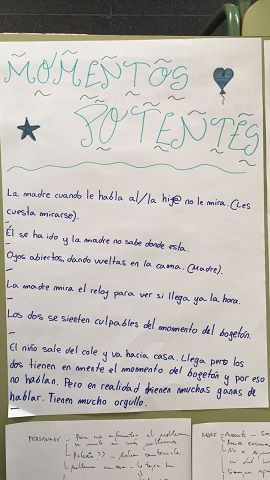 MOMENTOS
POTENTES
La madre cuando le habla al/la hij@ no le mira. (Les
cuesta mirarse).
Él se ha ido y la madre no sabe donde esta.
Ojos abiertos, dando vueltas en la cama. (Madre).
La madre mira el reloj para ver si llega ya la hora.
Los dos se sieeten culpables del momento del bogetón.
El niño sale del cole y va hacia casa. Llega pero los
dos tienen en mente el momento del bogetón y por eso
no hablan. Pero en realidad tienen muchas ganas de
hablar. Tienen mucho orgullo.
PERSONAJE - Para no afrontar el problema